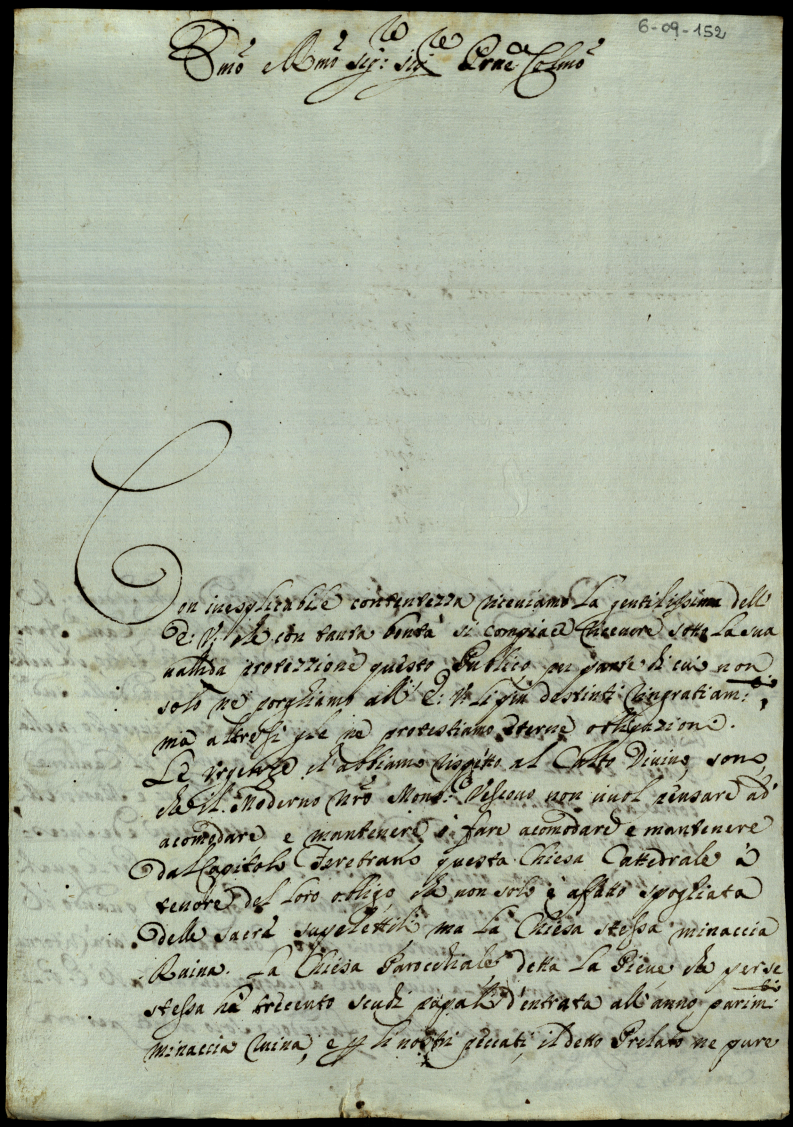 6-09-152
Emo e Rmo Sig: Sig Prne Colmo
Con inesplicabile contentezza riceviamo la gentilissima dell'
E: V: che con tanta bontà si compiace ricevere sotto la sua
valida protezzione questo Publico per parte di cui non
solo ne porghiamo all' E: V: li più destinti ringratiam:ti,
ma altresi gle ne protestiamo eterne obligazione.
Le urgenze ch'abbiamo rispetto al Culto Divino, sono,
che il Moderno nrõ Mons:re Vescovo non vuol pensare ad
acomodare e mantenere ò fare acomodare e mantenere
dal Capitolo Feretrano questa Chiesa Cattedrale à
tenore del loro obligo che non solo è affatto spogliata
delle sacre supelettili ma la Chiesa stessa minaccia
Ruina. La Chiesa Parocchiale detta la Pieve che per se
stessa hà trecento scudi papali d'entrata all'anno parim:ti
minaccia ruina, e p li nostri peccati, il detto Prelato ne pure